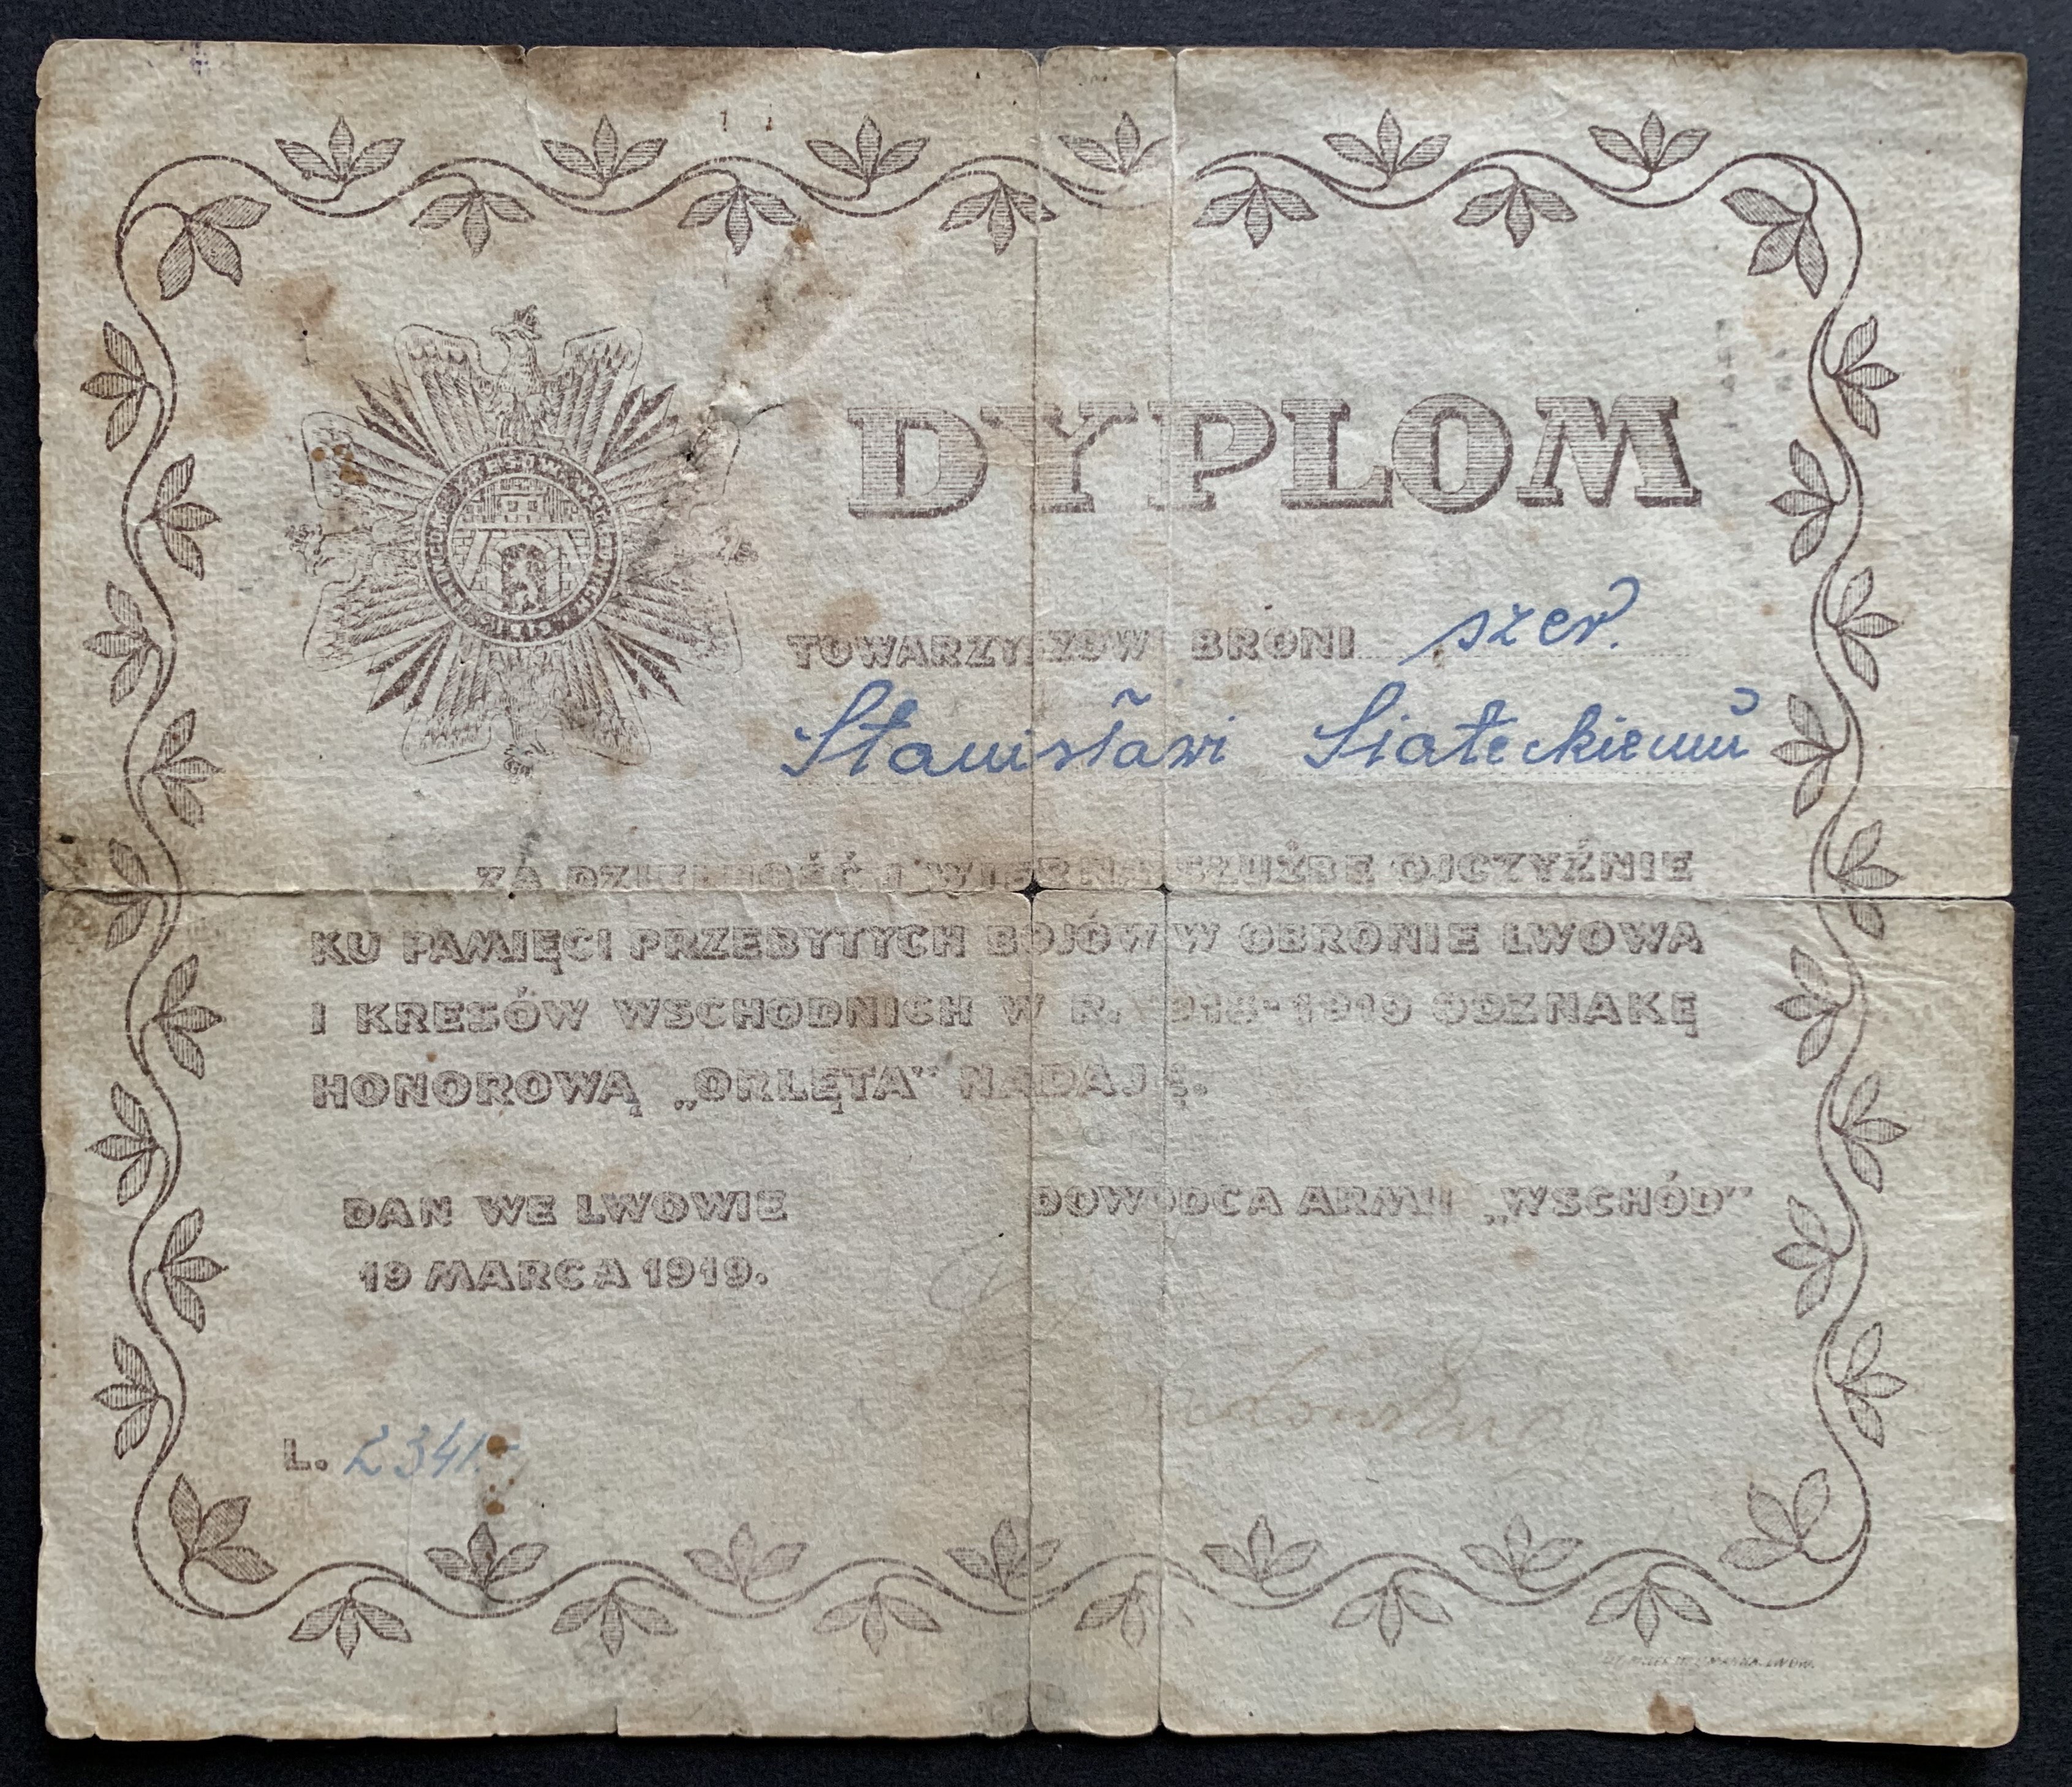 DYPLOM
TOWARZYSZOWI BRONI szer.
Stanisławi Siateckiemu
ZA DZIELNOŚĆ I WIERNĄ SŁUŻBĘ OJCZYŹNIE
KU PAMIĘCI PRZEBYTYCH BOJÓW W OBRONIE LWOWA
I KRESÓW WSCHODNICH W R. 1918-1919 ODZNAKĘ
HONOROWĄ „ORLĘTA" NADAJĘ.
DAN WE LWOWIE
19 MARCA 1919.
DOWÓDCA ARMII „WSCHÓD"
L. 2341